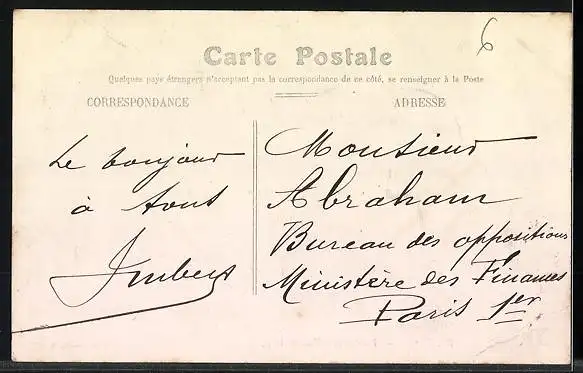 6
Carte Postale
Quelques pays étrangers n'acceptant pas la correspondance de ce côté, se renseigner à la Poste
CORRESPONDANCE
Le bonjour
à tous
Imbert
ADRESSE
Monsieur
Abraham
Bureau des oppositions
Ministère des Finances
Paris 1er